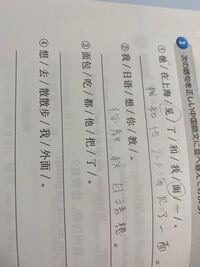 3 次の語句を正しい中国語文に並べ替えて
① 他/在上海/见/了/和/我/面/一/。
我和他在上海见了一面。
② 我/日语/想/你/教/。
③ 面包/吃/都/他/把/了/。
④ 想/去/散散步/我/外面/。